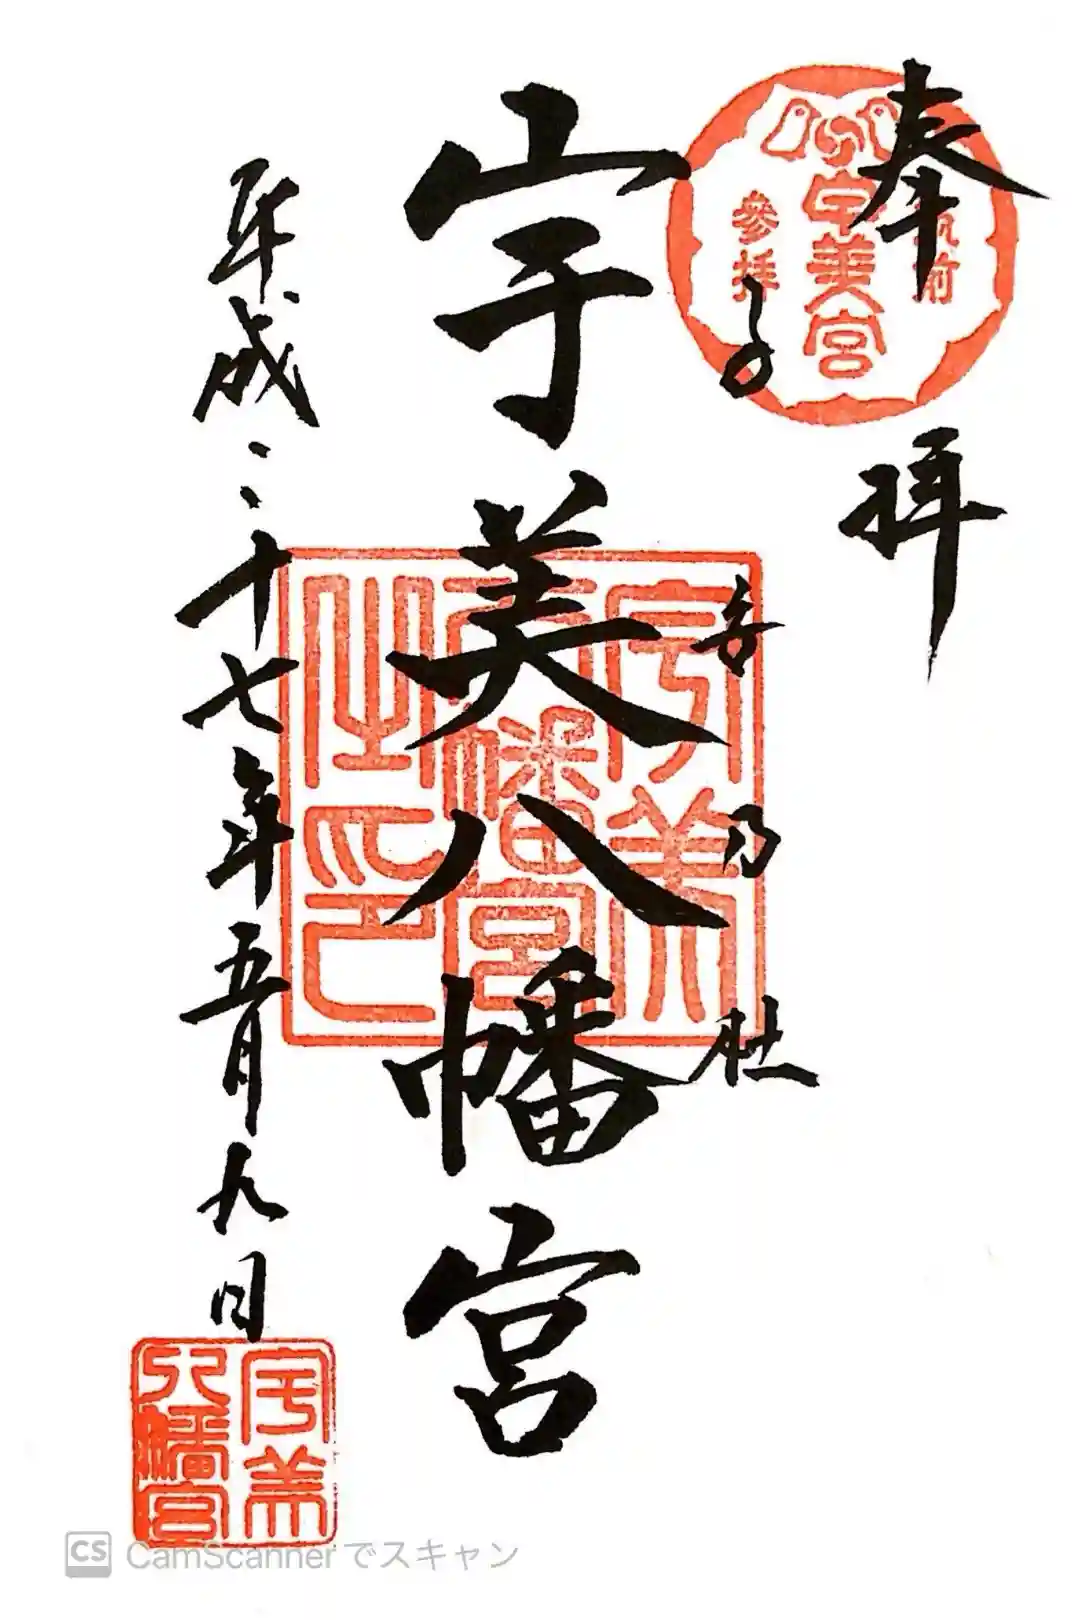 奉拝
筑前
宇美宮
參拝
子安乃杜
宇美八幡宮
宇美
八幡宮
之印
平成二十七年五月九日
宇美
八幡宮
CS CamScannerでスキャン